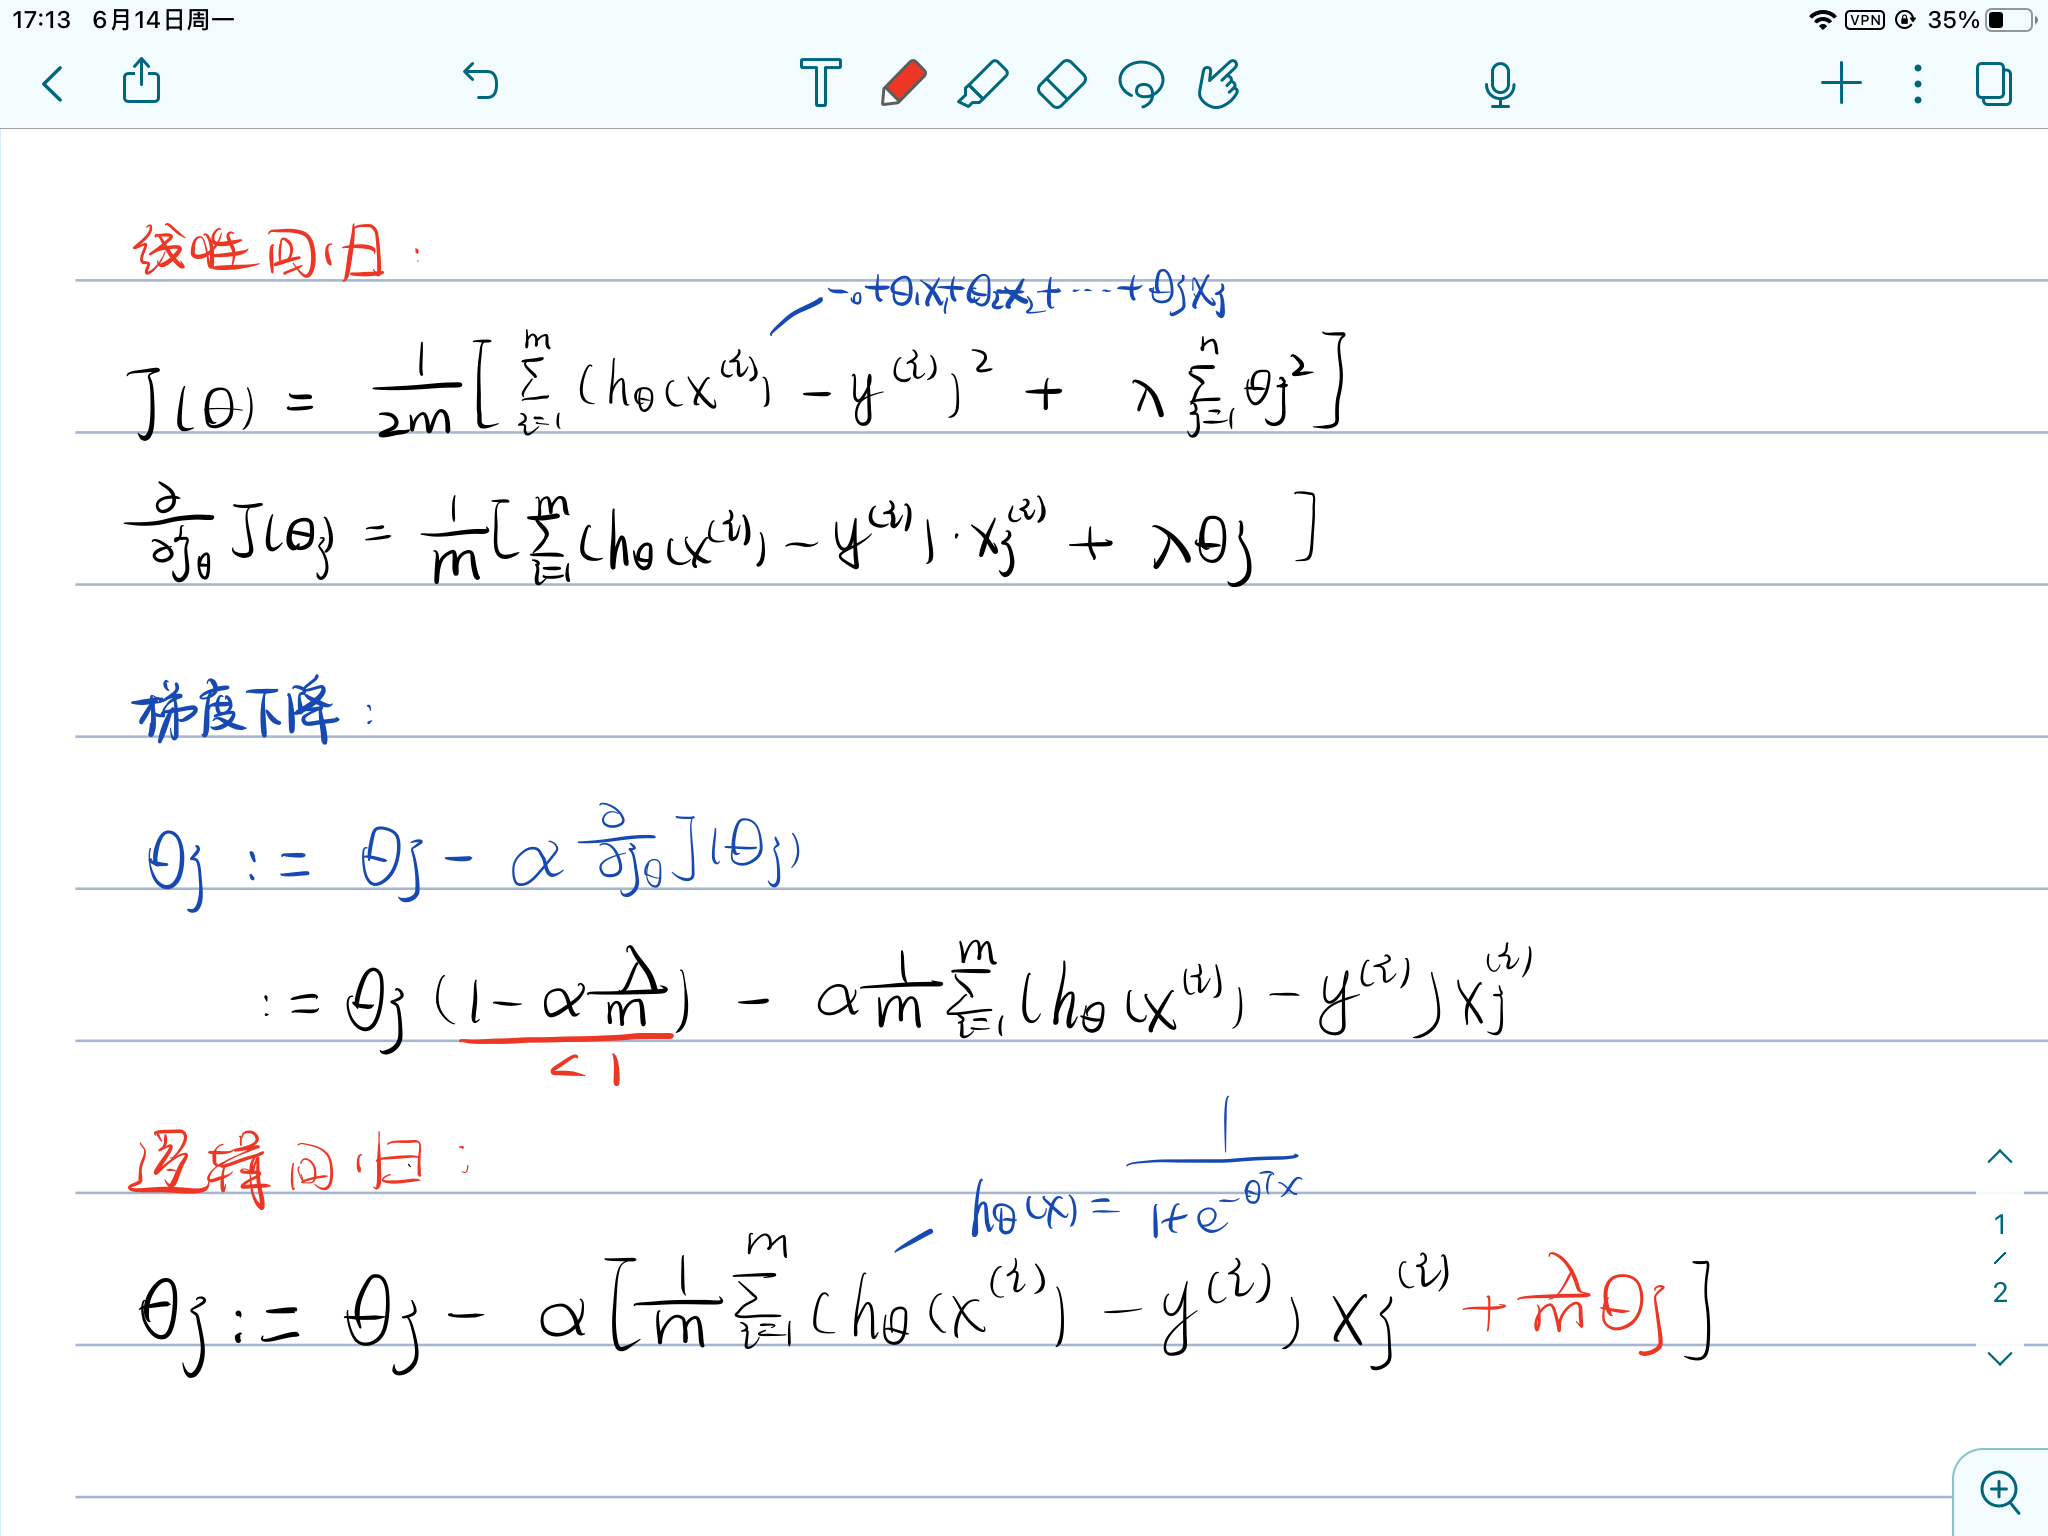 17:13 6月14日周一
VPN 35%
线性回归：
-₀+θ₁x₁+θ₂x₂+⋯+θjxj
J(θ) = 1/2m [ ∑_{i=1}^{m} (hθ(x^(i)) - y^(i))² + λ ∑_{j=1}^{n} θj² ]
∂/∂jθ J(θj) = 1/m [ ∑_{i=1}^{m} (hθ(x^(i)) - y^(i)) · xj^(i) + λθj ]
梯度下降：
θj := θj - α ∂/∂jθ J(θj)
:= θj (1 - α λ/m) - α 1/m ∑_{i=1}^{m} (hθ(x^(i)) - y^(i)) xj^(i)
< 1
逻辑回归：
hθ(x) = 1/(1+e^{-θᵀx})
θj := θj - α [ 1/m ∑_{i=1}^{m} (hθ(x^(i)) - y^(i)) xj^(i) + λ/m θj ]
1
/
2